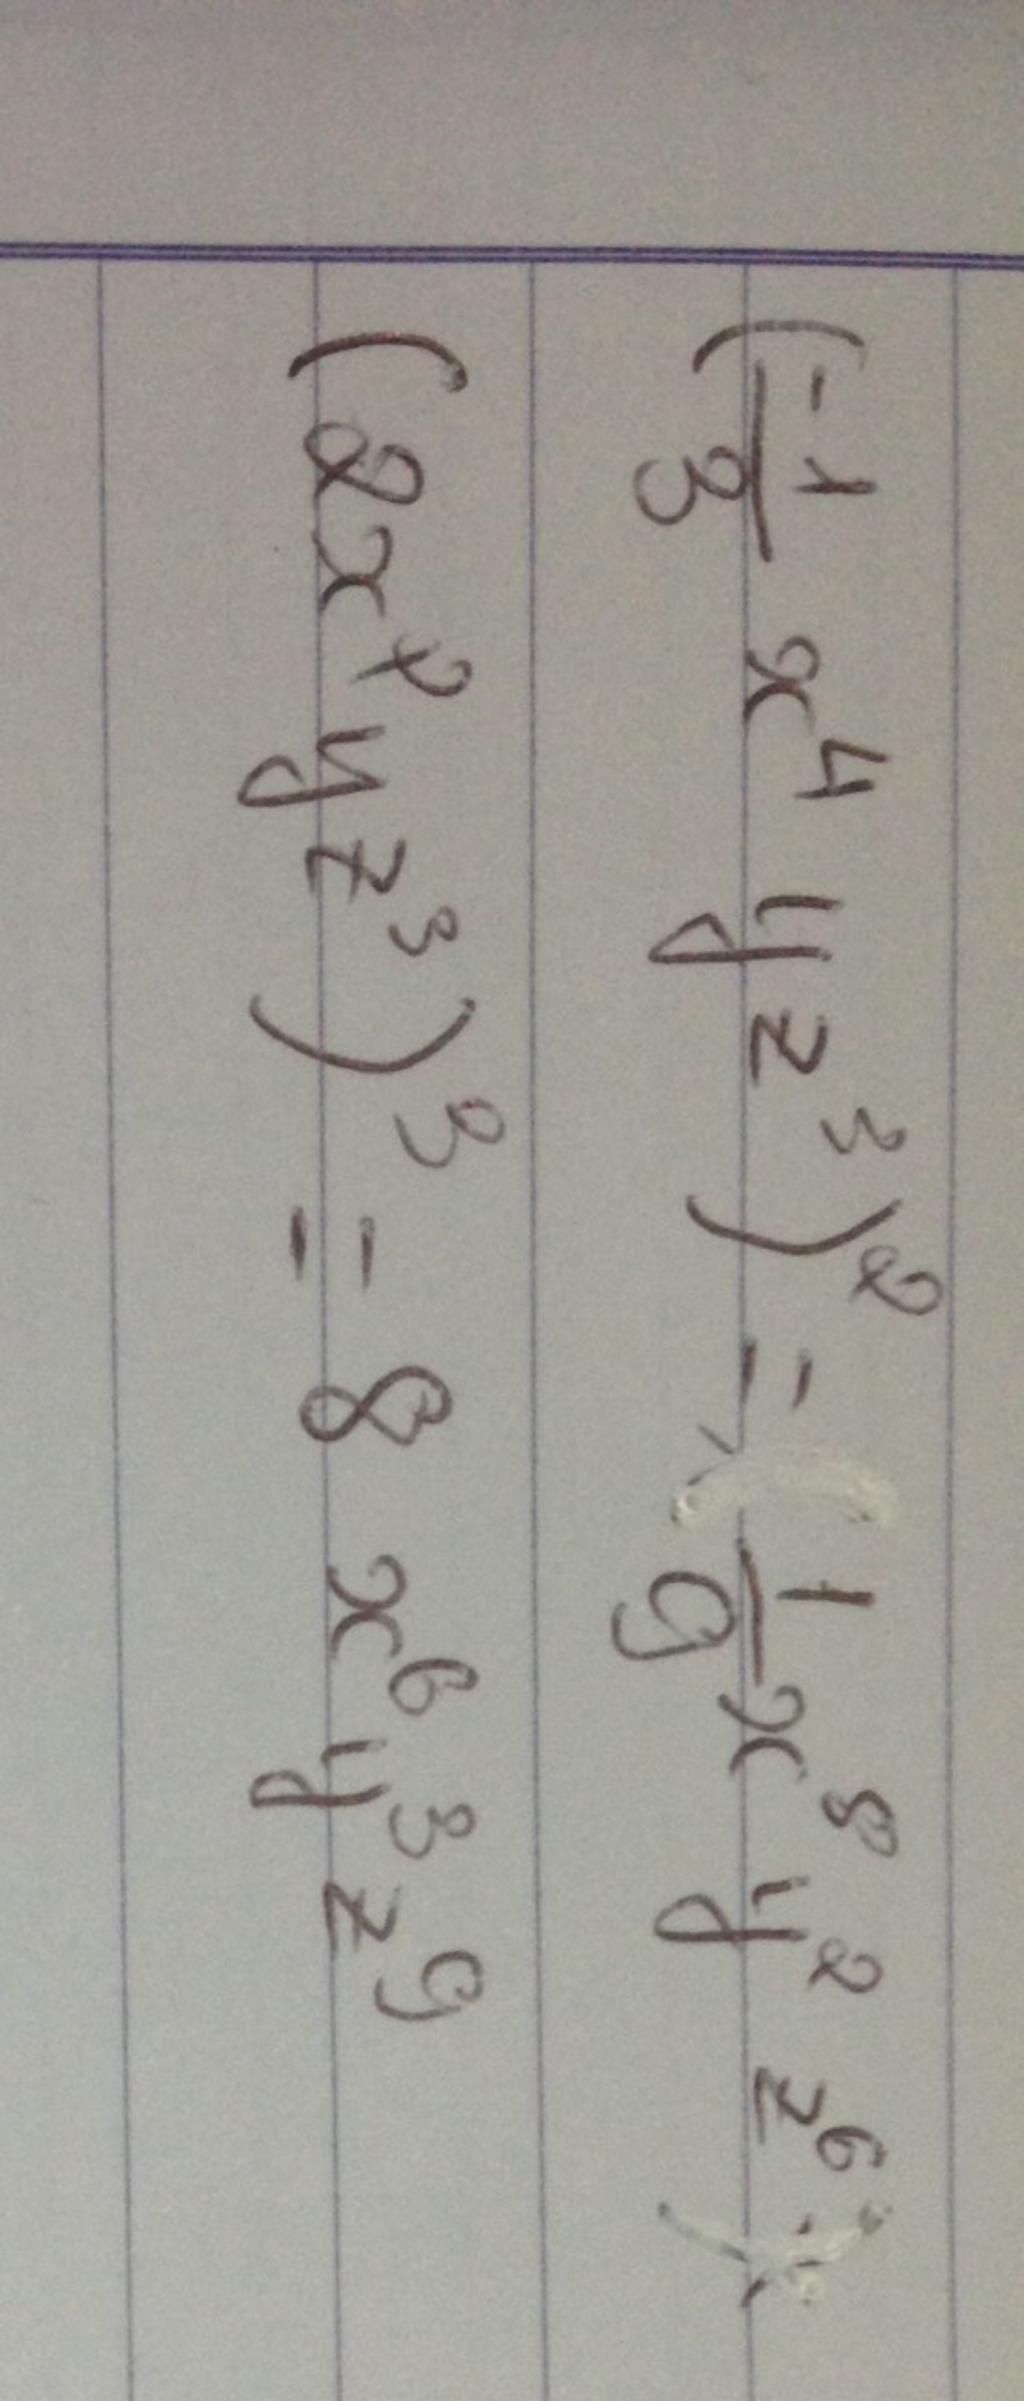 (-1/3 x⁴ y z³)² = (1/9 x⁸ y² z⁶)
(2x²yz³)³ = 8 x⁶y³z⁹